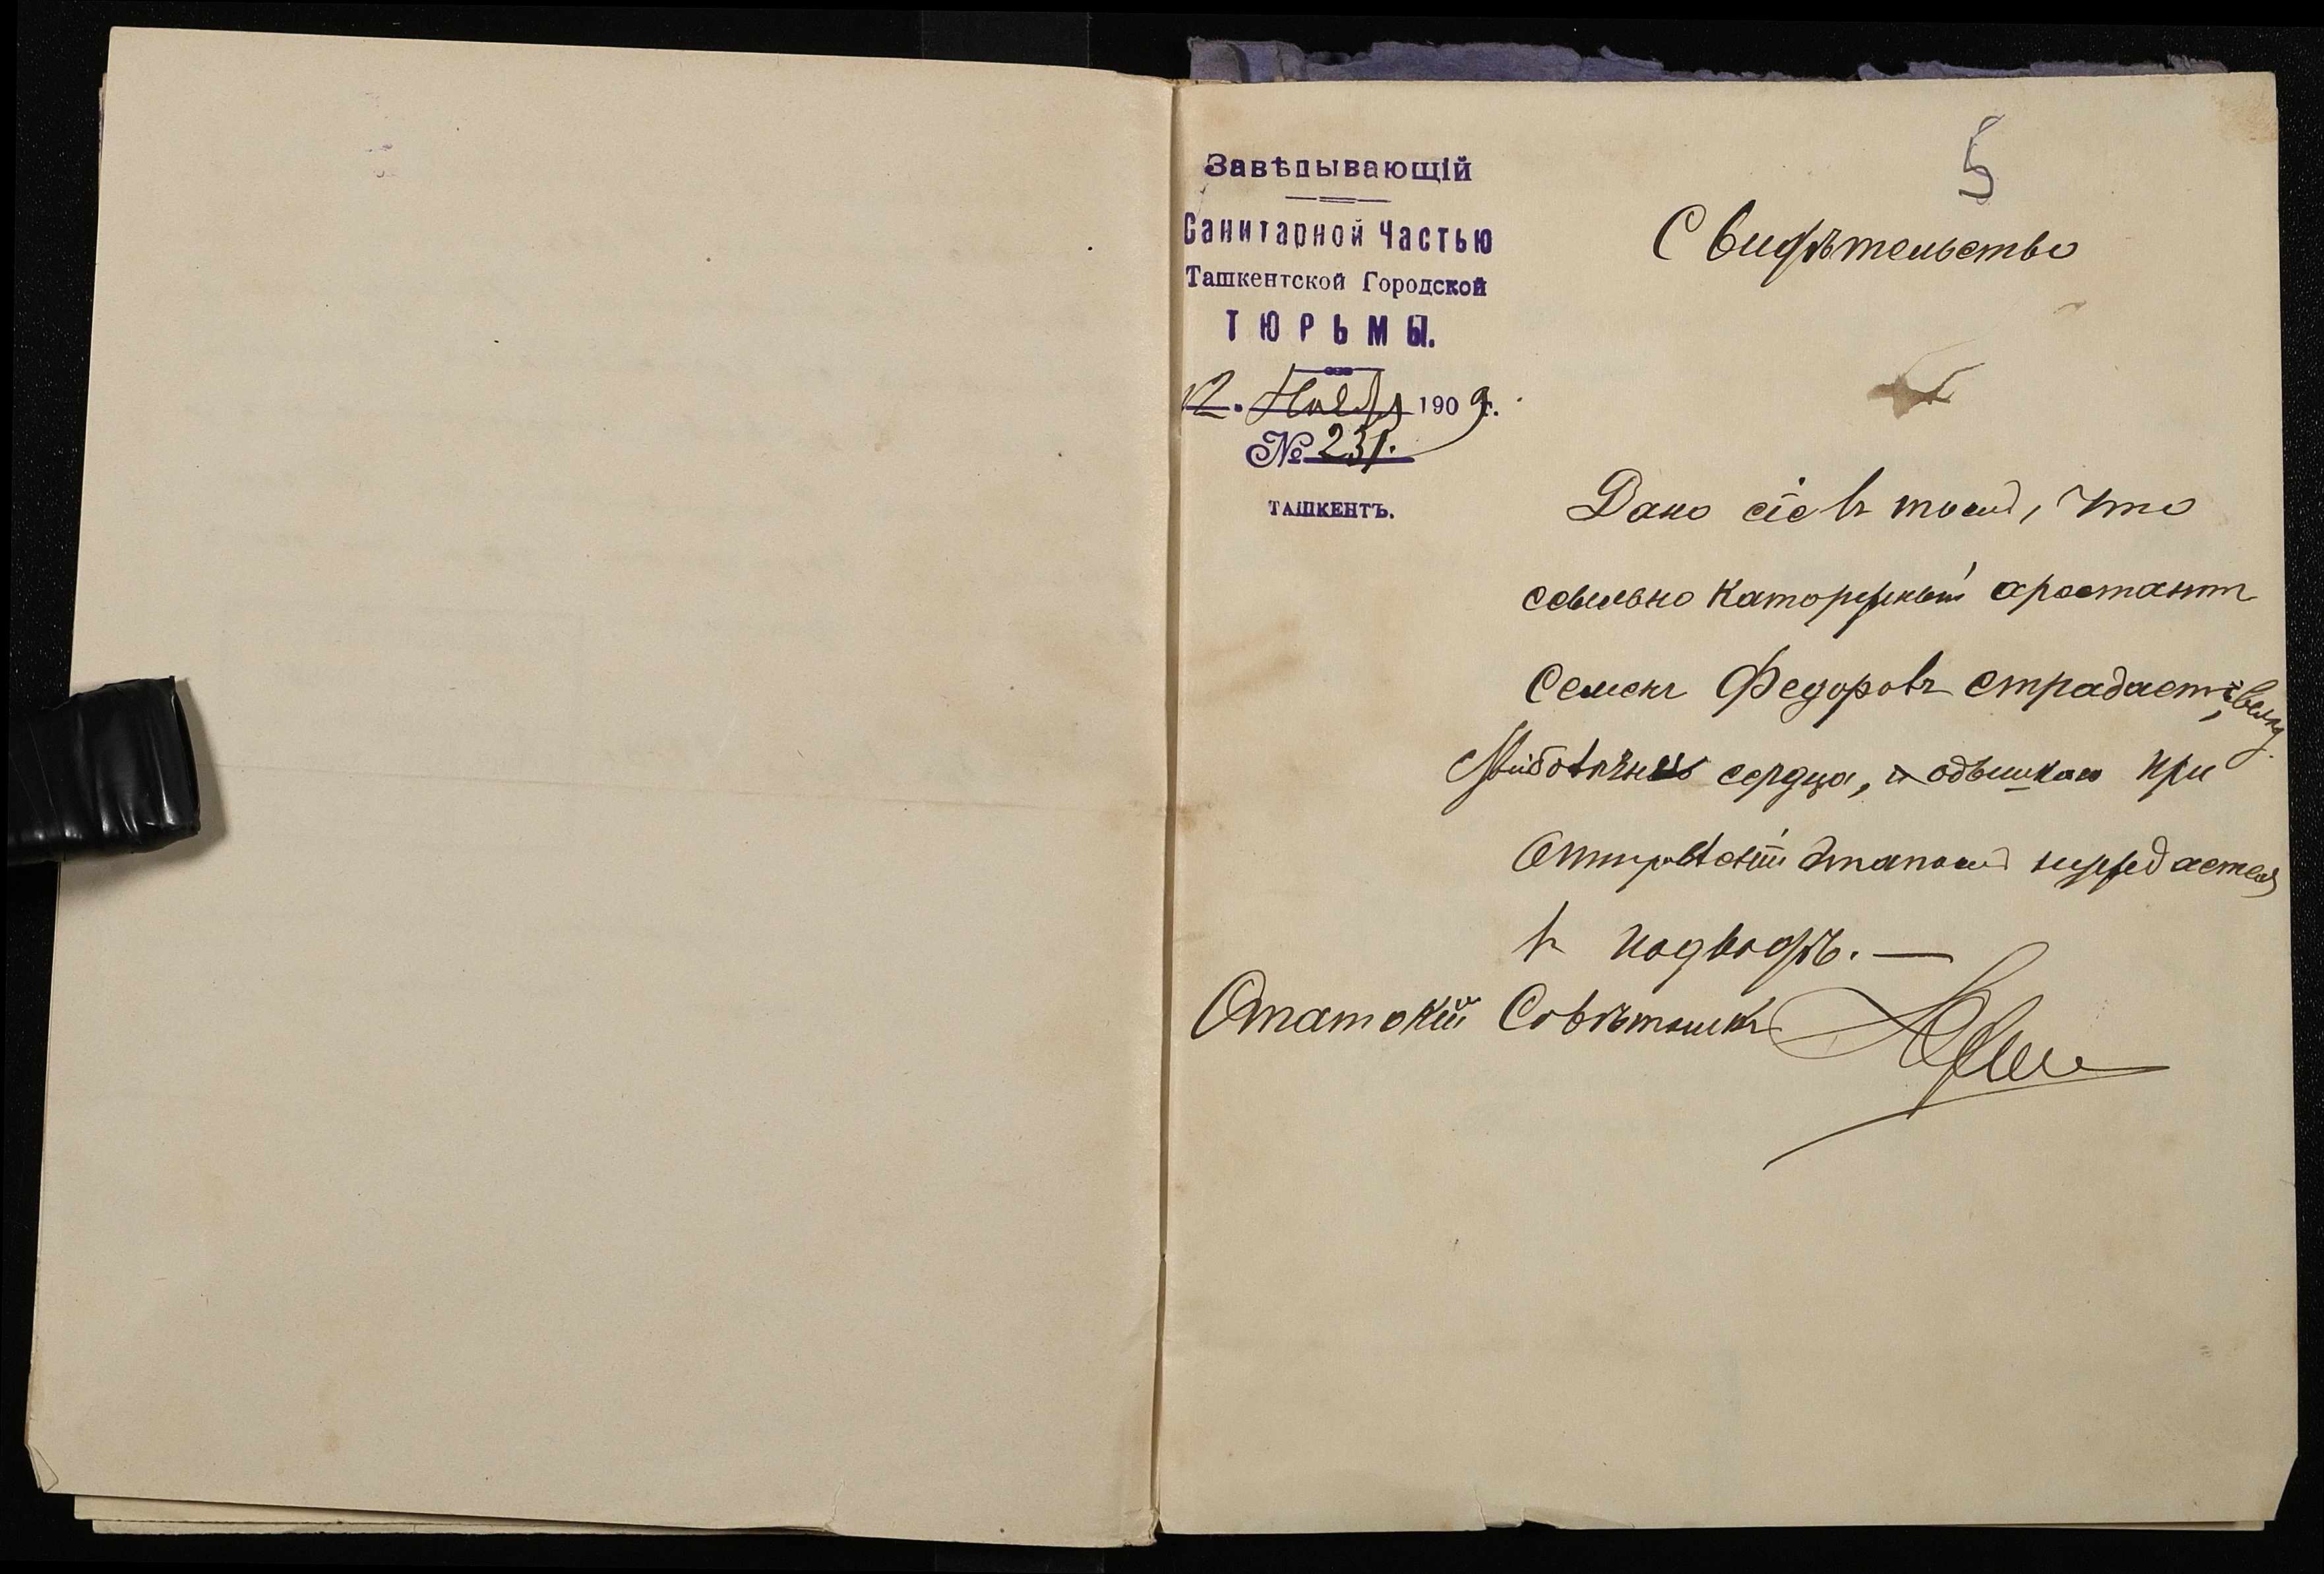 5
Завѣдывающій
Санитарной Частью
Ташкентской Городской
ТЮРЬМЫ.
12. Ноября 1909 г.
№ 231.
ТАШКЕНТЪ.
Свидѣтельство
Дано сіе въ томъ, что
ссыльно каторжный арестантъ
Семенъ Федоровъ страдаетъ
сердца, и одышкою при
отправленіи этапомъ нуждается
въ подводѣ. —
Статскій Совѣтникъ